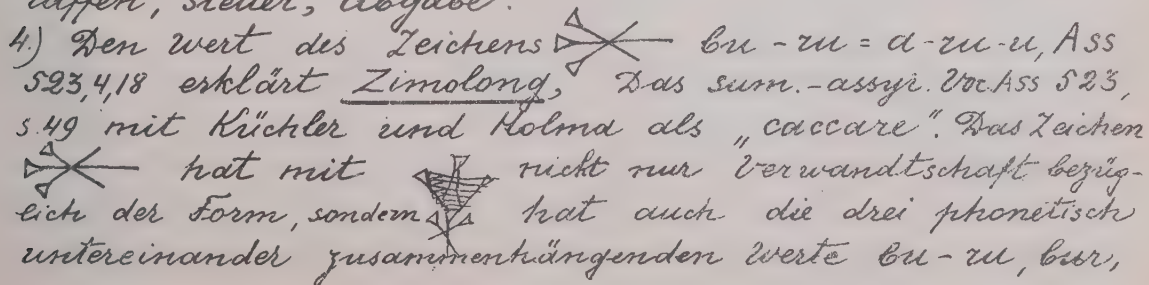 steuer, abgabe.
4.) Den Wert des Zeichens bu - ru = a-ru-u, Ass
523,4,18 erklärt Zimolong, Das sum.-assyr. Voc. Ass 523,
S. 49 mit Küchler und Holma als „caccare". Das Zeichen
hat mit nicht nur Verwandtschaft bezüg-
lich der Form, sondern hat auch die drei phonetisch
untereinander zusammenhängenden Werte bu - ru, bur,